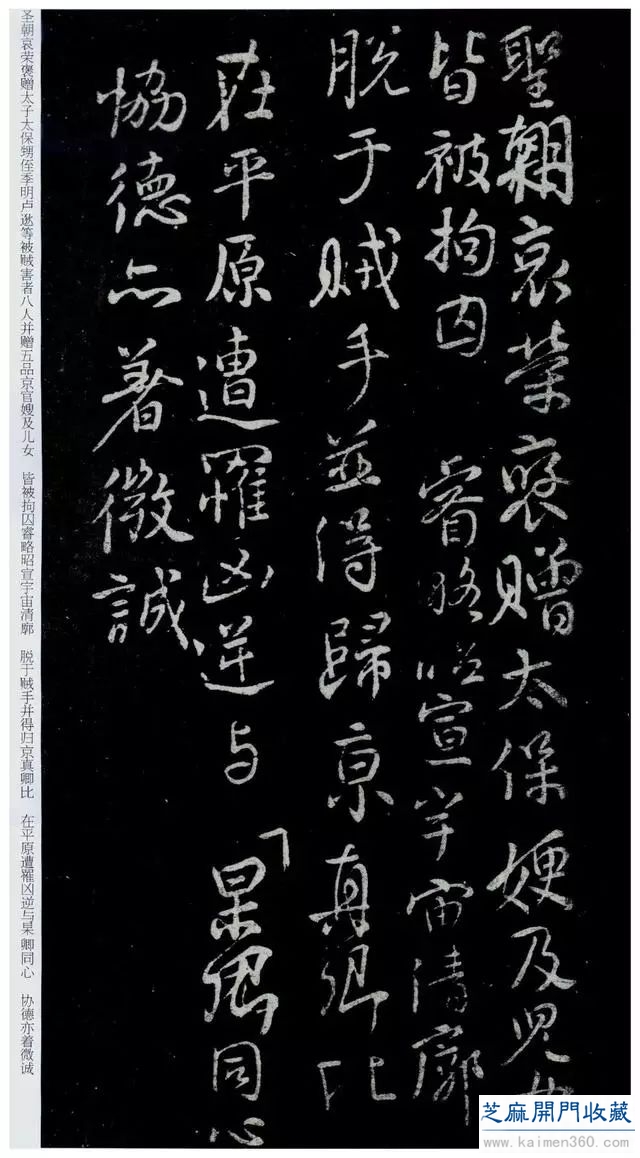 聖朝哀荣褒赠太保嫂及児女
皆被拘囚　睿略昭宣宇宙清廓
脱于贼手並得歸京真卿比
在平原遭罹凶逆与　杲卿同心
恊德亦著微誠
圣朝哀荣褒赠太子太保甥侄季明卢逖等被贼害者八人并赠五品京官嫂及儿女　皆被拘囚睿略昭宣宇宙清廓　脱于贼手并得归京真卿比　在平原遭罹凶逆与杲卿同心　协德亦着微诚
芝麻開門收藏
www.kaimen360.com